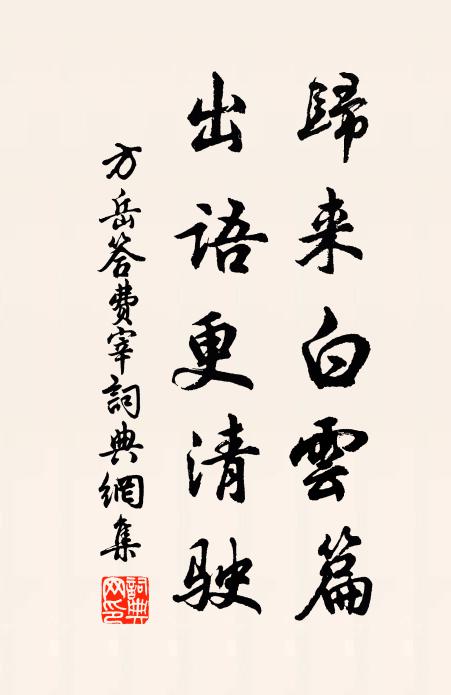 歸来白雲篇
出語更清駛
方岳答費宰詞典網集
詞典
网印